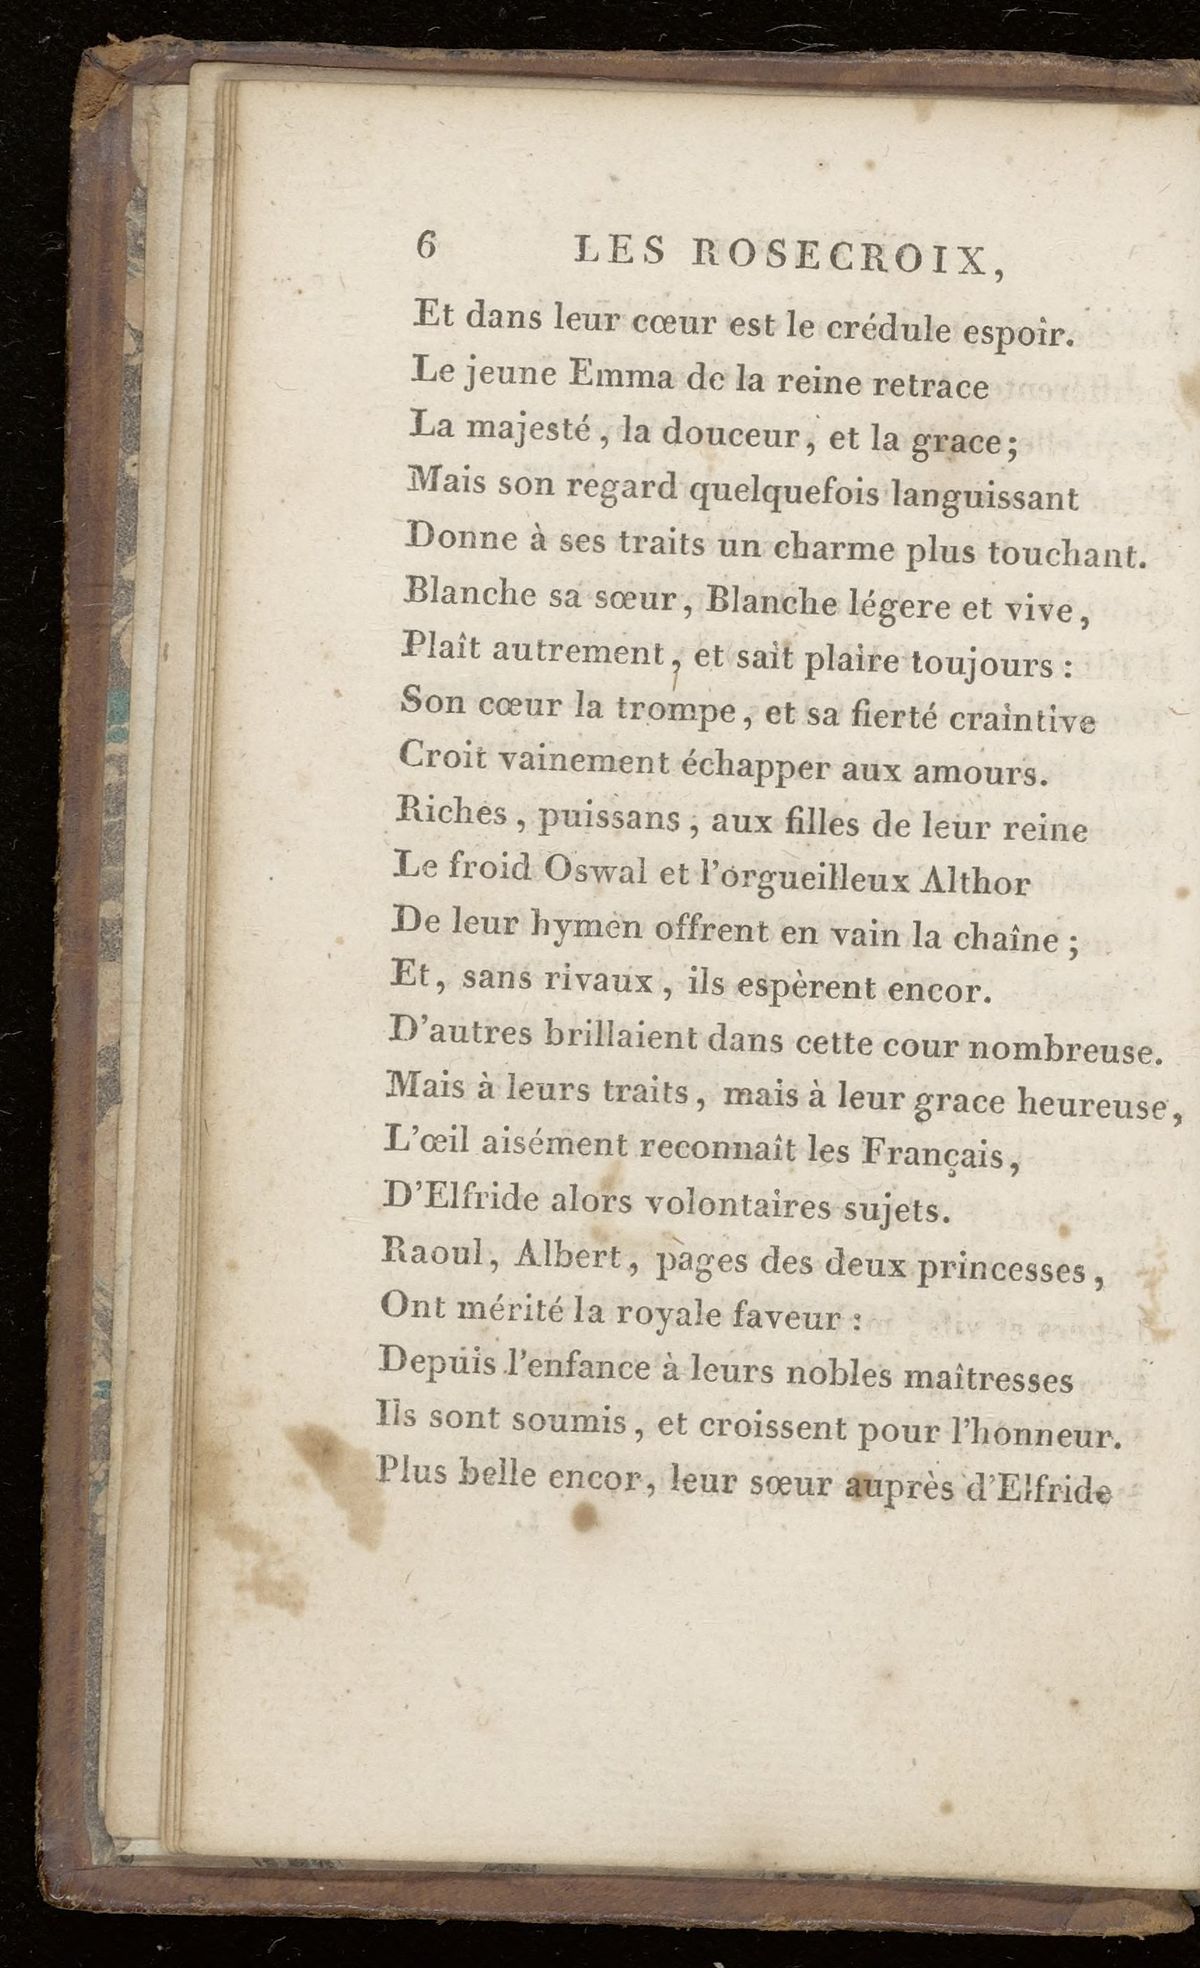 6 LES ROSECROIX,
Et dans leur cœur est le crédule espoir.
Le jeune Emma de la reine retrace
La majesté, la douceur, et la grace;
Mais son regard quelquefois languissant
Donne à ses traits un charme plus touchant.
Blanche sa sœur, Blanche légere et vive,
Plaît autrement, et sait plaire toujours :
Son cœur la trompe, et sa fierté craintive
Croit vainement échapper aux amours.
Riches, puissans, aux filles de leur reine
Le froid Oswal et l'orgueilleux Althor
De leur hymen offrent en vain la chaîne ;
Et, sans rivaux, ils espèrent encor.
D'autres brillaient dans cette cour nombreuse.
Mais à leurs traits, mais à leur grace heureuse,
L'œil aisément reconnaît les Français,
D'Elfride alors volontaires sujets.
Raoul, Albert, pages des deux princesses,
Ont mérité la royale faveur :
Depuis l'enfance à leurs nobles maîtresses
Ils sont soumis, et croissent pour l'honneur.
Plus belle encor, leur sœur auprès d'Elfride